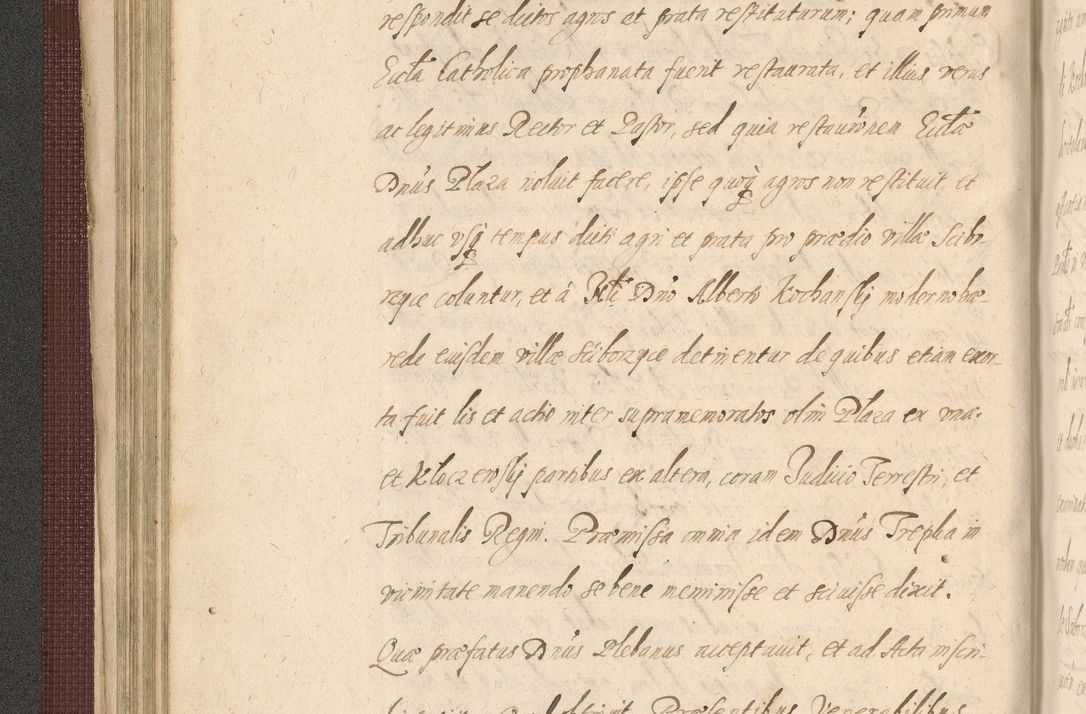 respondit se dictos agros et prata restituturum; quam primum
Eccła Catholica prophanata fuerit restaurata, et illius verus
ac legitimus Rector et Pastor, sed quia restauronem Eccłæ
Dnus Plaza noluit facere, ipse quoq agros non restituit, et
adhuc usq tempus dicti agri et prata pro prædio villæ Scibo-
rzyce coluntur, et á Dno Alberto Kochanskij moderno hæ-
rede eiusdem villæ Sciborzyce detinentur de quibus etiam exor-
ta fuit lis et actio inter supramemoratos olim Plaza ex una.
et Kloczewskij partibus ex altera, coram Judicio Terrestri, et
Tribunalis Regni. Præmissa omnia idem Dnus Trepka in
vicinitate manendo se bene meminisse et scivisse dixit.
Quæ præfatus Dnus Plebanus acceptavit, et ad Acta inscri-
Præsentibus Venerabilibus